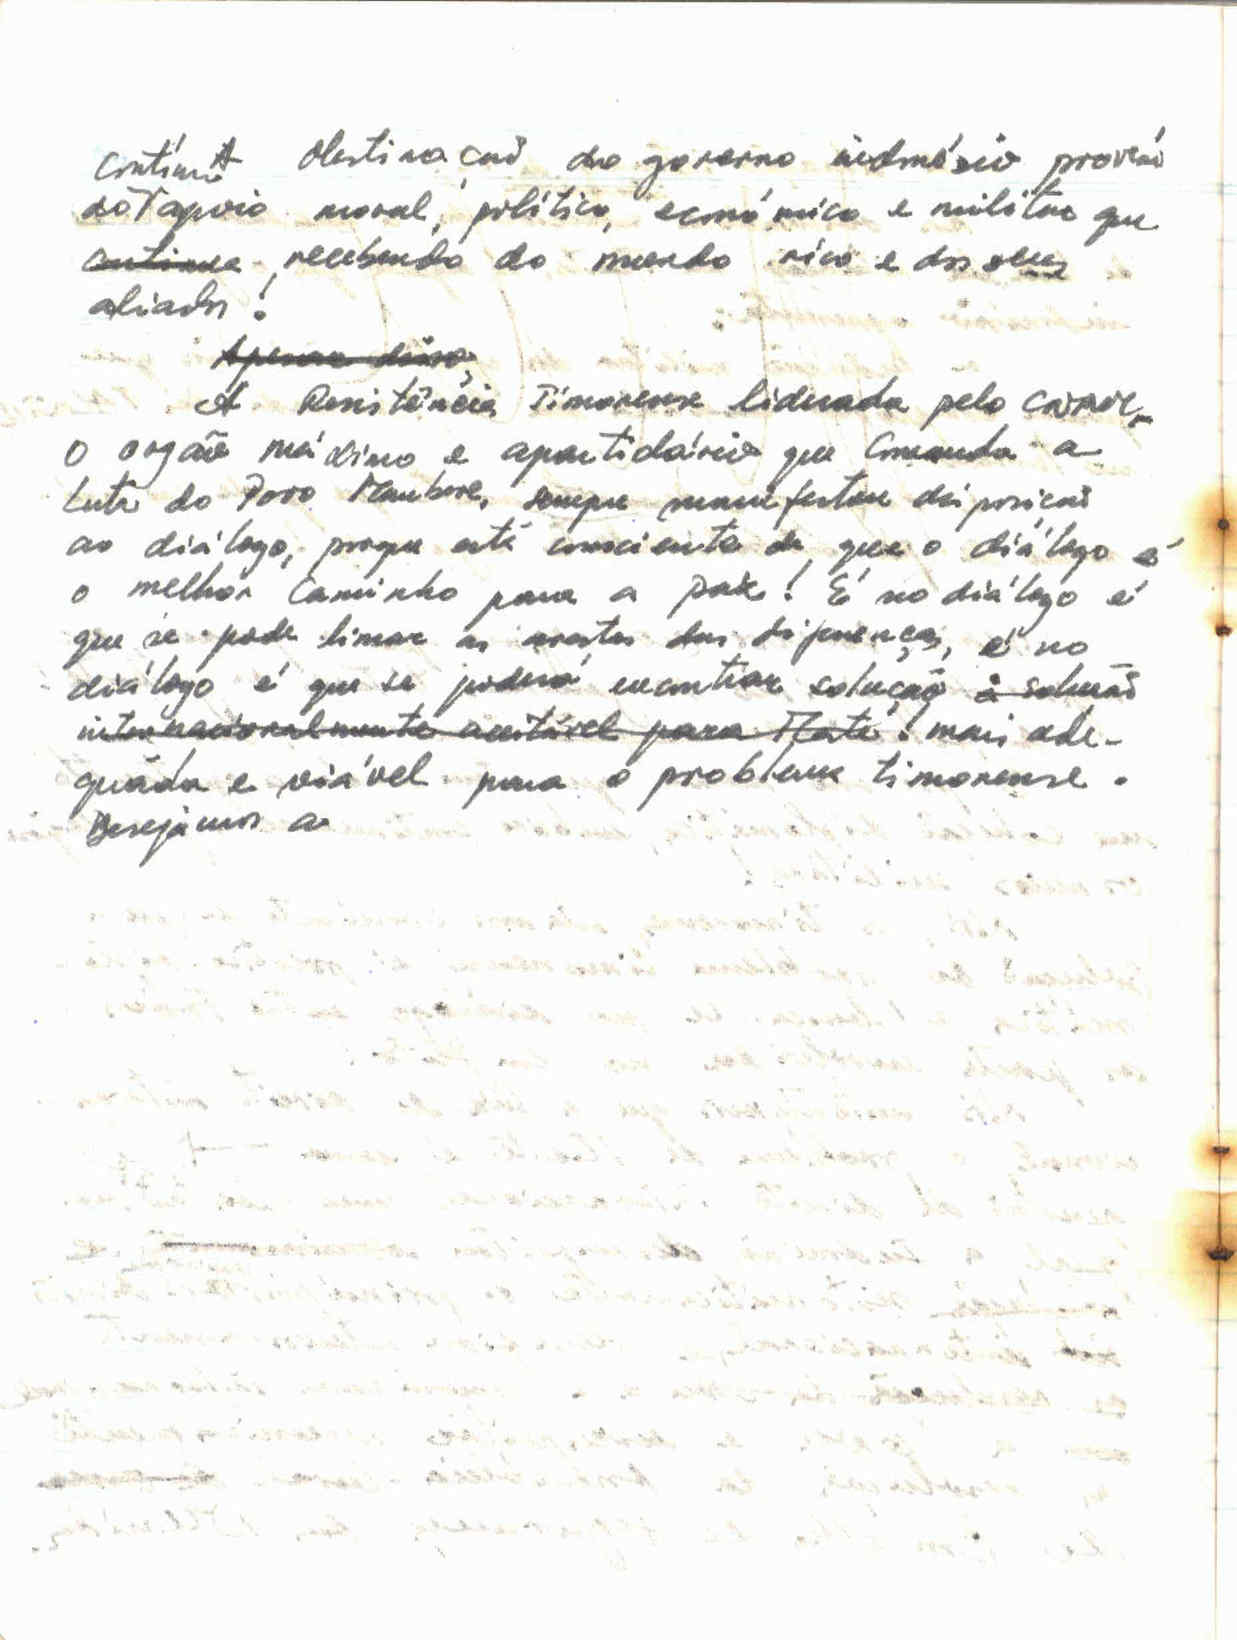 A obstinação do governo indonésio provém
do contínuo apoio moral, político, económico e militar que
continua recebendo do mundo rico e dos seus
aliados!
Apesar disso,
A Resistência Timorense liderada pelo CNRM,
o orgão máximo e apartidário que comanda a
Luta do Povo Maubere, sempre manifestou disposição
ao diálogo, porque está consciente de que o diálogo é
o melhor caminho para a paz! É no diálogo é
que se pode limar as arestas das diferenças, é no
diálogo é que se poderá encontrar solução a solução
internacionalmente aceitável para Mate! mais ade-
quada e viável para o problema timorense.
Desejamos a